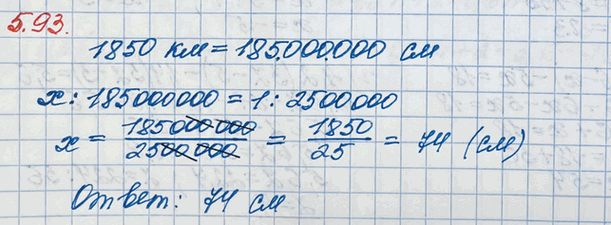 5.93.
1850 км = 185.000.000 см
x : 185000000 = 1 : 2500000
x = 185000000/2500000 = 1850/25 = 74 (см)
Ответ: 74 см